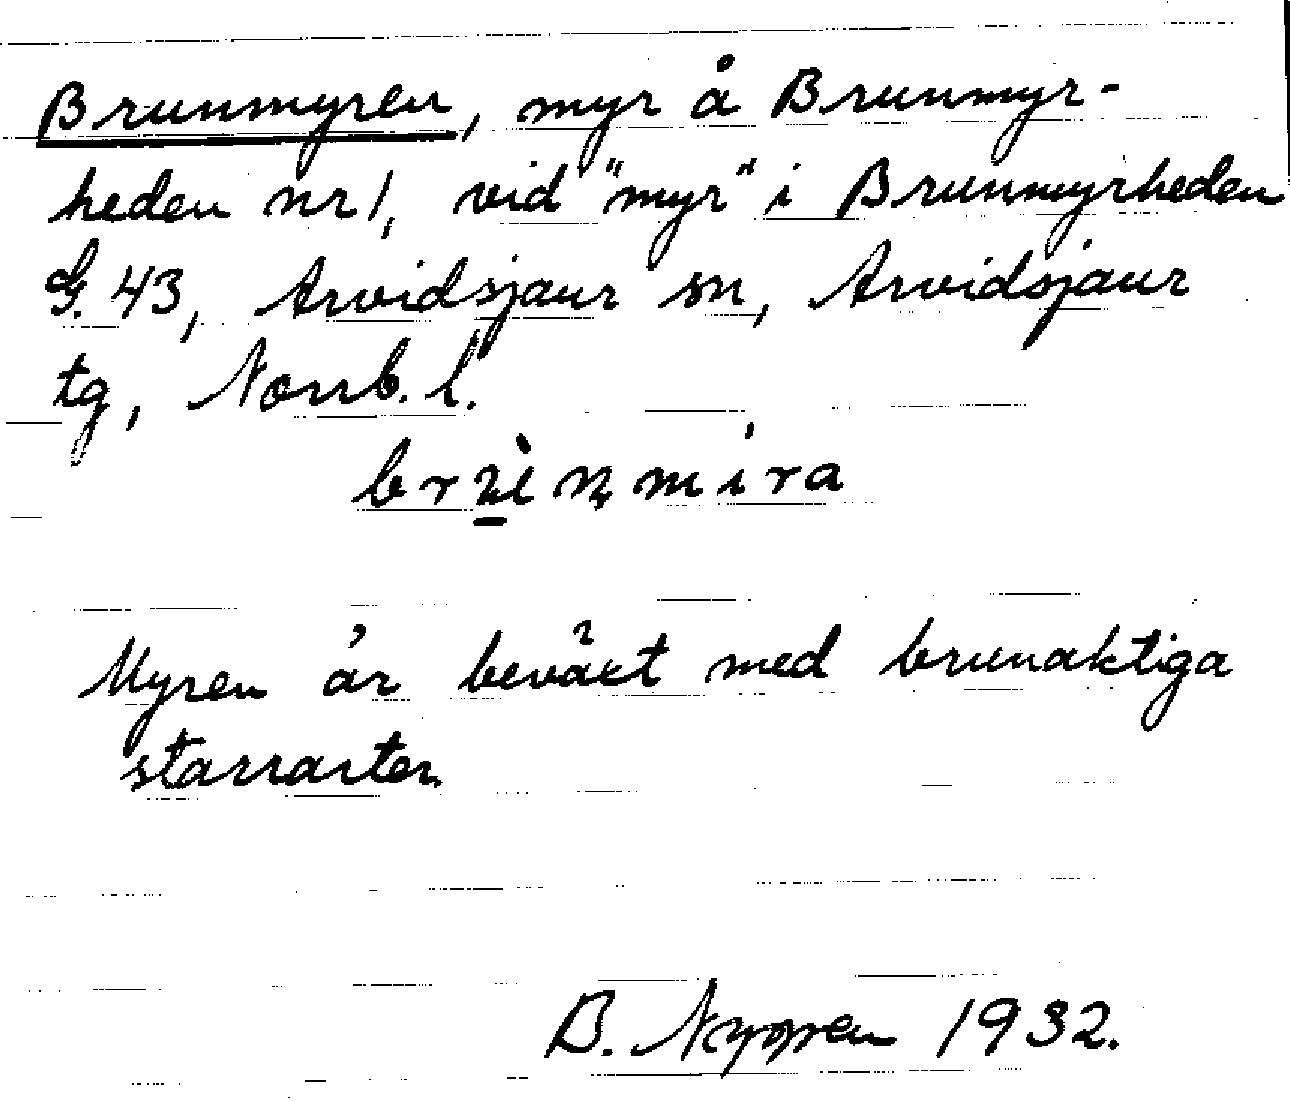 Brunmyren, myr å Brunmyr-
heden nr 1, vid "myr" i Brunmyrheden
G. 43, Arvidsjaur sn, Arvidsjaur
tg, Norrb. l.
Myren är beväxt med brunaktiga
starrarter.
B. 1932.